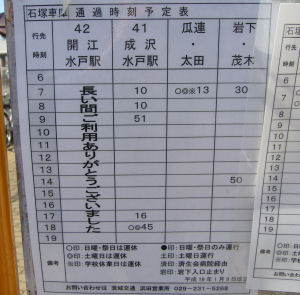 石塚車庫 通過時刻予定表
行先 42 41 瓜連 岩下
開江 成沢 ・ ・
時刻 水戸駅 水戸駅 太田 茂木
6
7 10 ○◎※13 30
8 10
9 51
10
11
12
13
14 50
15
16
17 16
18 ○◎45
長い間ご利用ありがとうございました
○印:日曜・祭日は運休 ●印:日曜・祭日のみ運行
◎印:土曜日は運休 土印:土曜日運行
備考 ※印:学校休業日は運休 済印:済生会病院経由
岩印:岩下入口止まり
平成19年1月9日
お問い合わせは 茨城交通 浜田営業所 029-231-5268